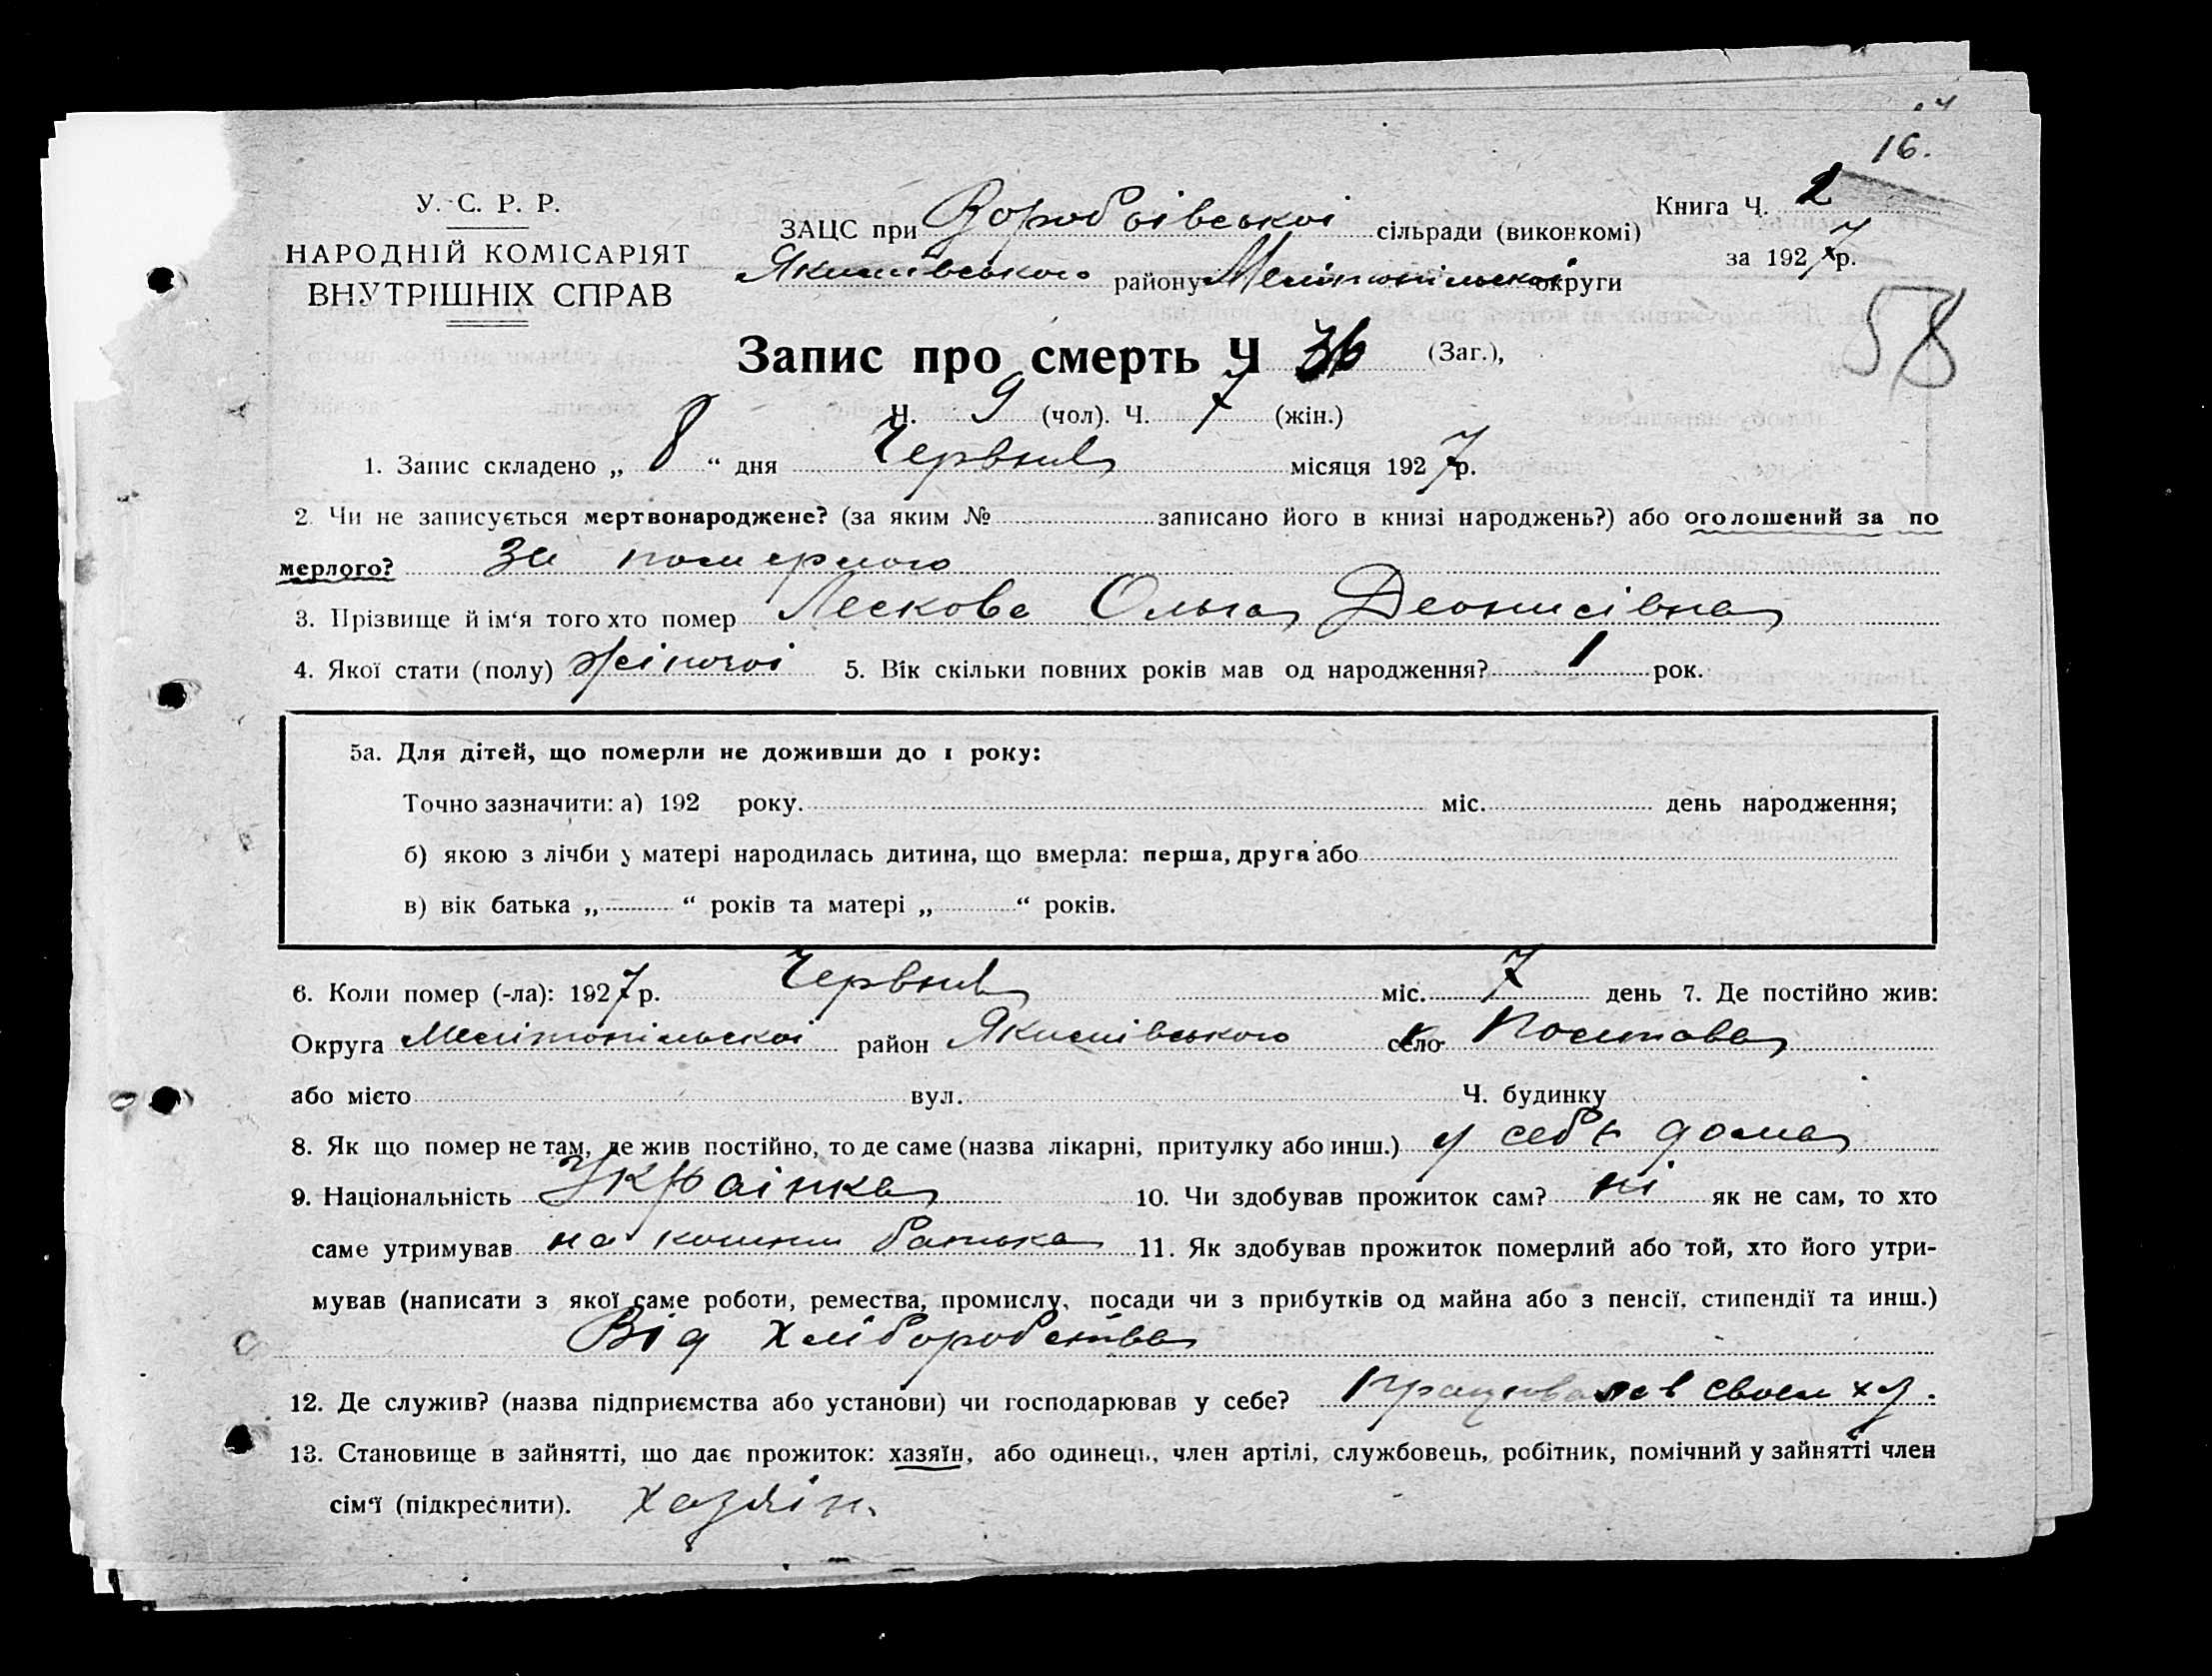 16.
У. С. Р. Р.
НАРОДНІЙ КОМІСАРІЯТ
ВНУТРІШНІХ СПРАВ
ЗАЦС при Воробъівськоі сільради (виконкомі)
Якимівського району Мелітопільскоі округи
Книга Ч. 2
за 1927 р.
58
Запис про смерть Ч (Заг.),
Ч. 9 (чол). Ч. 7 (жін.)
1. Запис складено „ 8 “ дня Червня місяця 1927 р.
2. Чи не записується мертвонароджене? (за яким № записано його в книзі народжень?) або оголошений за по
мерлого? За померлого
3. Прізвище й ім‘я того хто помер Лескова Ольга Деонисівна
4. Якої стати (полу) жіночоі 5. Вік скільки повних років мав од народження? 1 рок.
5а. Для дітей, що померли не доживши до 1 року:
Точно зазначити: а) 192 року. міс. день народження;
б) якою з лічби у матері народилась дитина, що вмерла: перша, друга або
в) вік батька „ “ років та матері „ “ років.
6. Коли помер (-ла): 1927 р. Червня міс. 7 день 7. Де постійно жив:
Округа Мелітопільскоі район Якимівського село
або місто вул. Ч. будинку
8. Як що помер не там, де жив постійно, то де саме (назва лікарні, притулку або инш.) у себѣ дома
9. Національність Украінка 10. Чи здобував прожиток сам? ні як не сам, то хто
саме утримував на кошти батька 11. Як здобував прожиток померлий або той, хто його утри-
мував (написати з якої саме роботи, ремества, промислу, посади чи з прибутків од майна або з пенсії, стипендії та инш.)
Від хліборобства
12. Де служив? (назва підприємства або установи) чи господарював у себе? в своєм хоз.
13. Становище в зайнятті, що дає прожиток: хазяїн, або одинець, член артілі, службовець, робітник, помічний у зайнятті член
сім‘ї (підкреслити). хазяін.